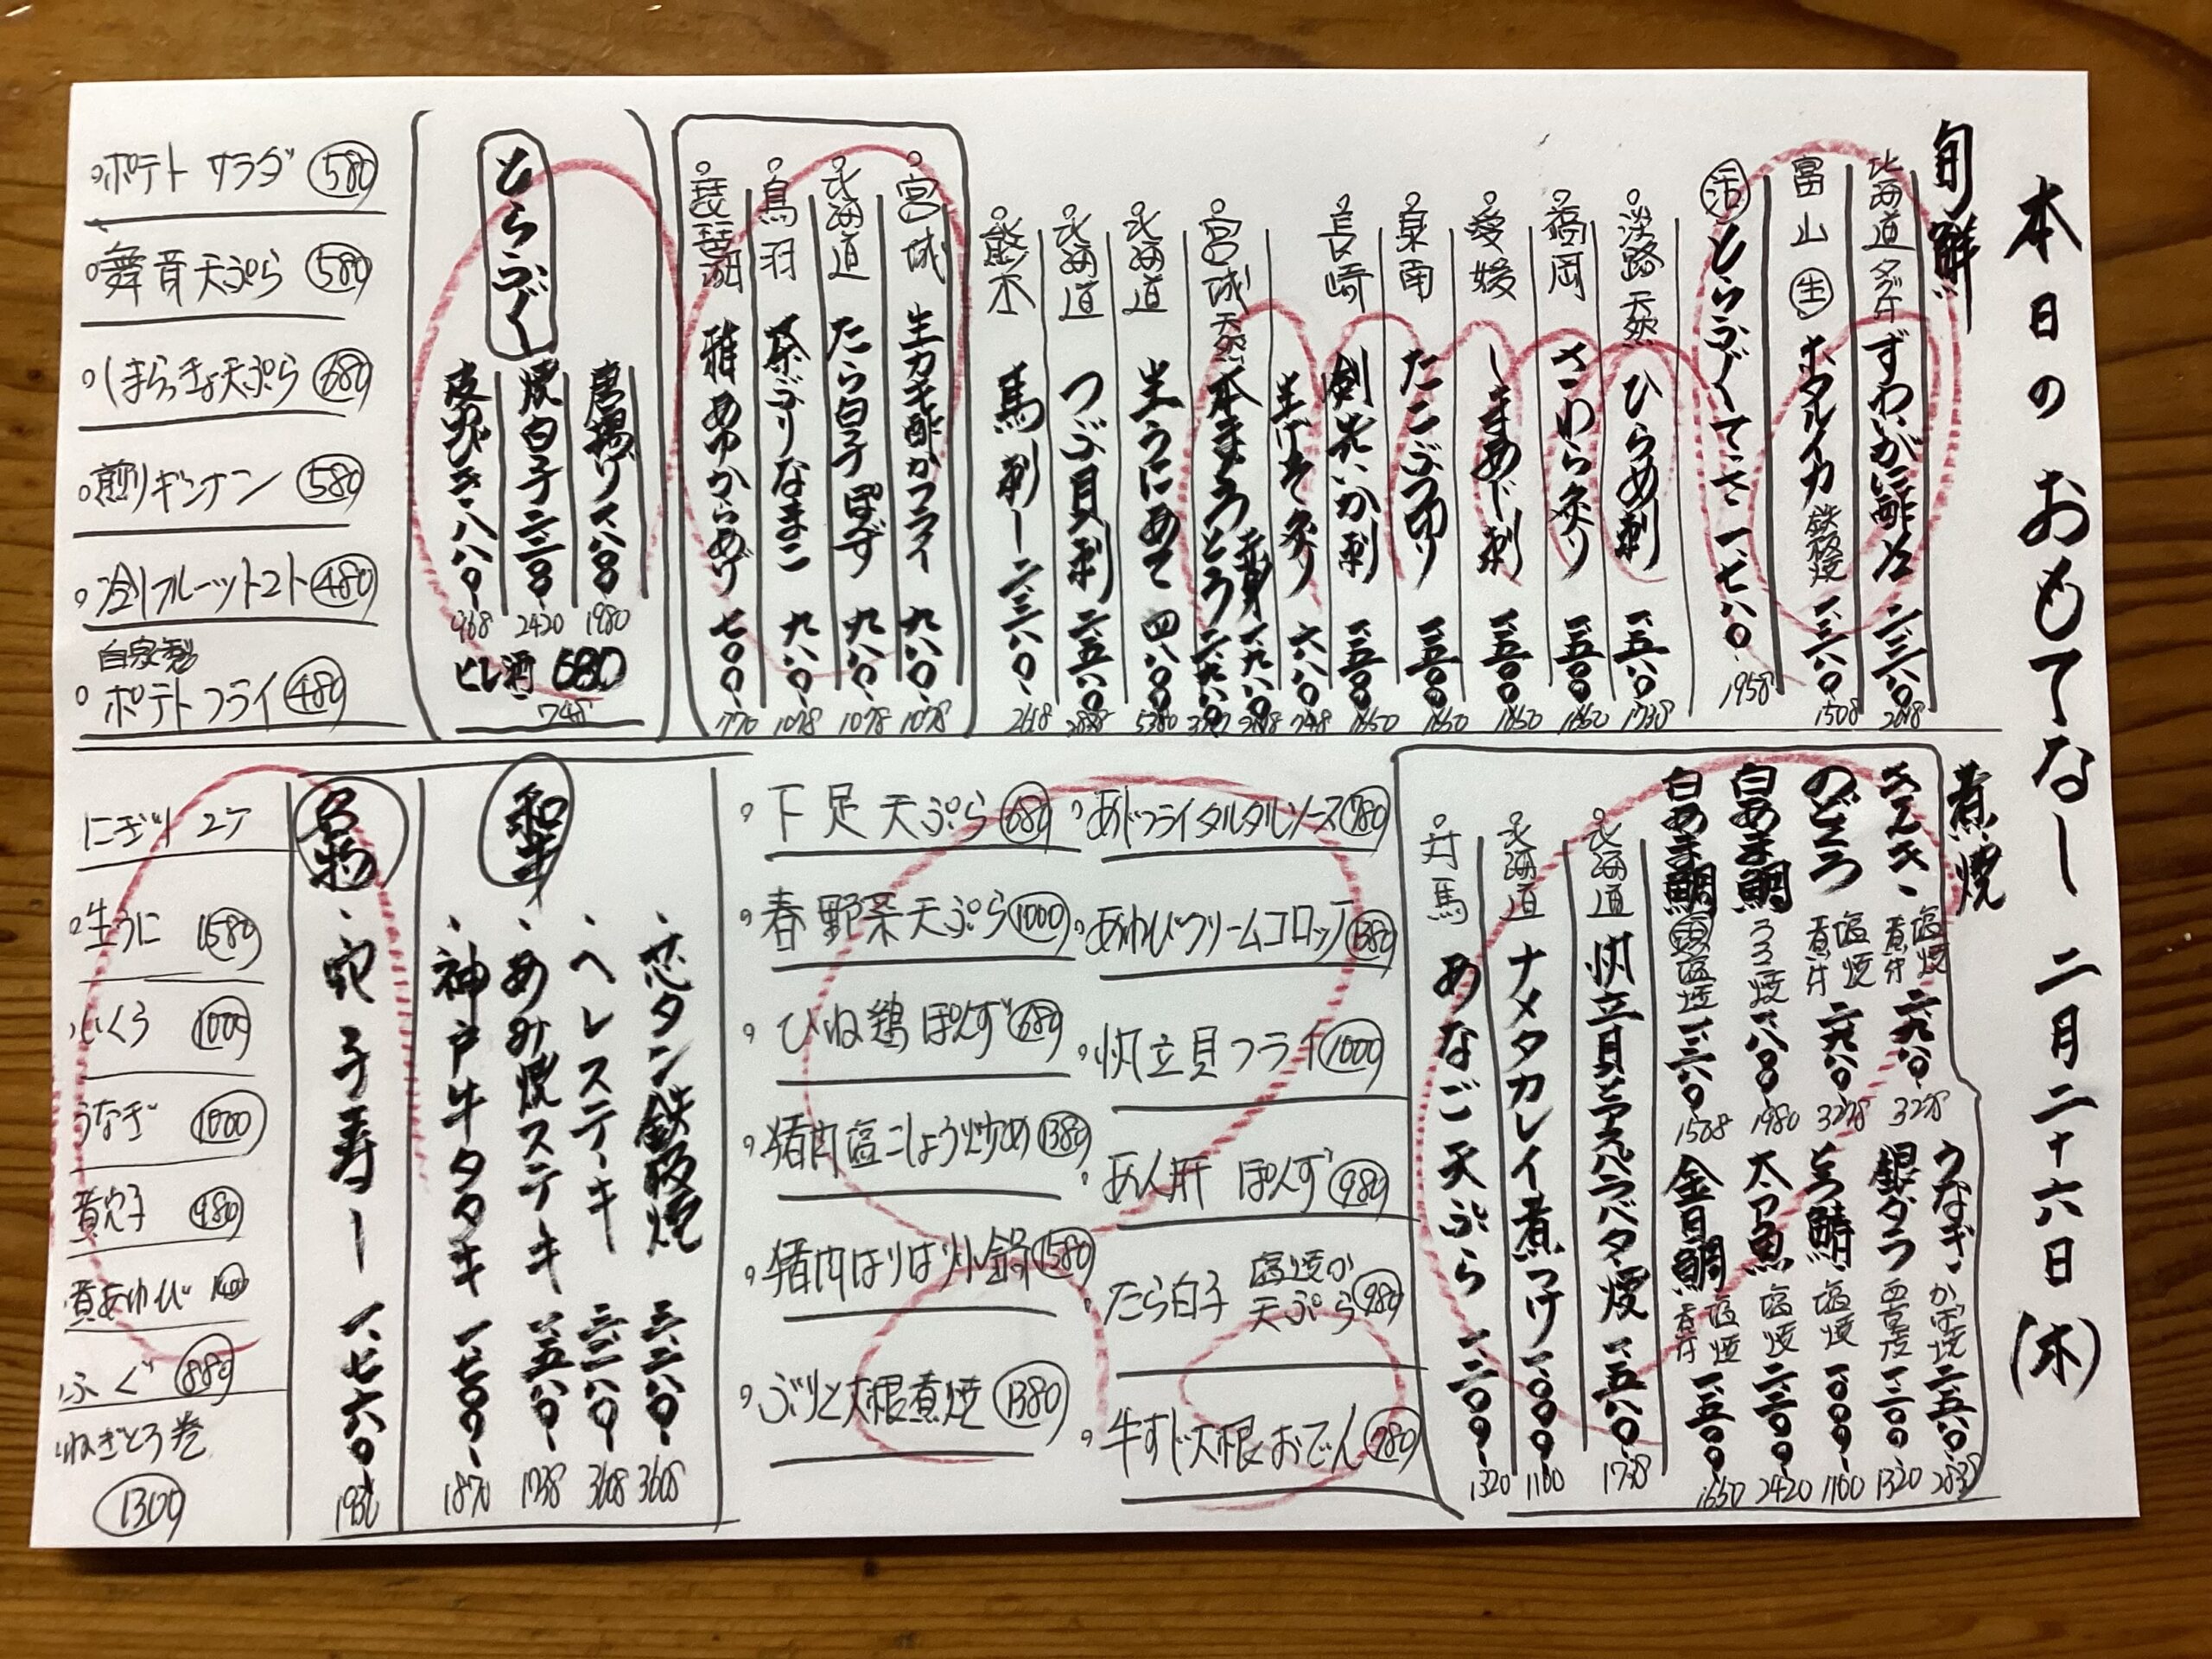 本日のおもてなし 二月二十六日(木)
旬鮮
北海道 タグ付 ずわいがに酢 二、三八〇 2618
富山 生 ホタルイカ 鉄板焼
活 とらふぐてっさ 一、七八〇 1958
淡路 天然 ひらめ刺 一、五八〇 1738
福岡 さわら炙り 一、五〇〇 1650
愛媛 しまあじ刺 一、五〇〇 1650
泉南 たこぶつ切り 一、五〇〇 1650
長崎 剣先いか刺 一、五〇〇 1650
生げそ炙り 六八〇 748
宮城 天然 本まぐろ とろ 赤身 一、九八〇
北海道 生うにあて 四、八〇〇
北海道 つぶ貝刺 二、五八〇
熊本 馬刺し 二、三八〇 2618
宮城 生カキ酢かフライ 九八〇 1078
北海道 たら白子ぽず 九八〇 1078
鳥羽 茶ぶりなまこ 九八〇 1078
琵琶湖 稚あゆからあげ 七〇〇 770
とらふぐ
唐揚げ 一、八〇〇 1980
焼白子 二、二〇〇 2420
皮湯びき 八八〇 968
ヒレ酒 680
748
ポテトサラダ 580
舞茸天ぷら 580
しまらっきょ天ぷら 680
煎りギンナン 580
冷しフルーツトマト 480
自家製
ポテトフライ 480
煮焼
きんき 塩焼 煮付 二、九八〇 3278
のどぐろ 塩焼 煮付 二、九八〇 3278
白あま鯛 うろこ焼 一、八〇〇 1980
白あま鯛 頭 塩焼
うなぎ かば焼 二、五八〇 2838
銀ダラ 西京焼 一、二〇〇 1320
とろ鯖 塩焼 一、〇〇〇 1100
太刀魚 塩焼 二、二〇〇 2420
金目鯛 塩焼 煮付 一、五〇〇 1650
北海道 帆立貝とアスパラバター焼 一、五八〇 1738
北海道 ナメタカレイ煮つけ 一、〇〇〇 1100
対馬 あなご天ぷら 一、二〇〇 1320
あじフライタルタルソース 780
あわびクリームコロッケ 1380
帆立貝フライ 1000
あん肝 ぽんず 980
たら白子 塩焼か天ぷら 980
牛すじ大根おでん 780
下足天ぷら 680
春野菜天ぷら 1000
ひね鶏ぽんず 680
猪肉塩こしょう炒め 1380
猪肉はりはり小鍋 1580
ぶりと大根煮焼 1380
和牛
芯タン鉄板焼 三、二八〇 3608
ヘレステーキ 三、二八〇 3608
あみ焼ステーキ 一、五八〇 1738
神戸牛タタキ 一、七〇〇 1870
名物
穴子寿し 一、七六〇 1936
にぎり 2ケ
生うに 1580
いくら 1000
うなぎ 1000
煮穴子 980
煮あわび
ふぐ 880
ねぎとろ巻
1300